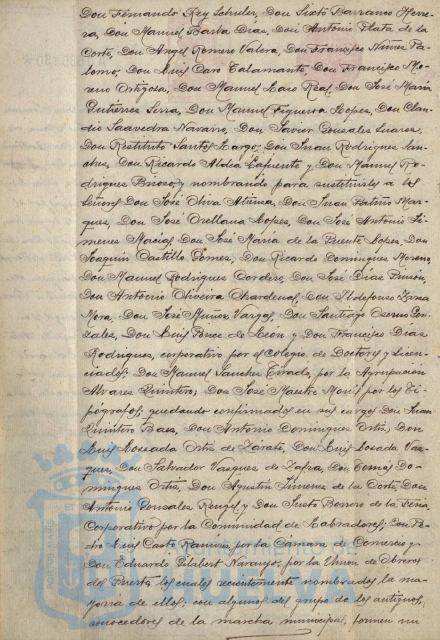 Don Fernando Rey Schuler, Don Sixto Barranco Herre-
ra, Don Manuel Barba Días, Don Antonio Plata de la
Corte, Don Angel Romero Valera, Don Francisco Núñez Pa-
lomo, Don Luis Caro Talamante, Don Francisco Mo-
reno Ortigosa, Don Manuel Lazo Real, Don José María
Gutiérrez Serra, Don Manuel Figueroa Lopes, Don Clau-
dio Saavedra Navarro, Don Javier Gonsales Suarez,
Don Restituto Santos Largo, Don Juan Rodrigues San-
ches, Don Ricardo Aldea Lafuente y Don Manuel Ro-
drigues Brioso, y nombrando para sustituirles a los
señores Don José Oliva Atienza, Don Juan Patiño Mar-
ques, Don José Orellana Lopes, Don José Antonio Ji-
menes Macías, Don José María de la Puente Lopes, Don
Joaquin Castillo Gomes, Don Ricardo Domingues Moreno,
Don Manuel Rodrigues Cordero, Don José Días Pinzón,
Don Antonio Oliveira Chardenal, Don Ildefonso
Mora, Don José Muños Vargas, Don Santiago Osorno Gon-
zales, Don Luis Ponce de León y Don Francisco Días
Rodrigues, corporativo por el Colegio de Doctores y Licen-
ciados; Don Manuel Sanches Tirado, por la Agrupación
Alvares Quintero; Don José Maestre por los Ti-
pógrafos; quedando confirmados en sus cargos Don Juan
Quintero Baes, Don Antonio Domingues Ortis, Don
Luis Lossada Ortis de Zárate, Don Luis Losada Vas-
ques, Don Salvador Vasques de Zafra, Don Tomás Do-
mingues Ortis, Don Agustin Jimenes de la Corte, Don
Antonio Gonsales Rengel, y Don Justo Borrero de la Feria,
Corporativo por la Comunidad de Labradores; Don Pe-
dro Luis Casto Ramírez por la Cámara de Comercio y
Don Eduardo Gilabert Naranjo, por la Union de Obreros
del Puerto los cuales recientemente nombrados la ma-
yoria de ellos; con algunos del grupo de los antiguos,
conocedores de la marcha municipal, formen un